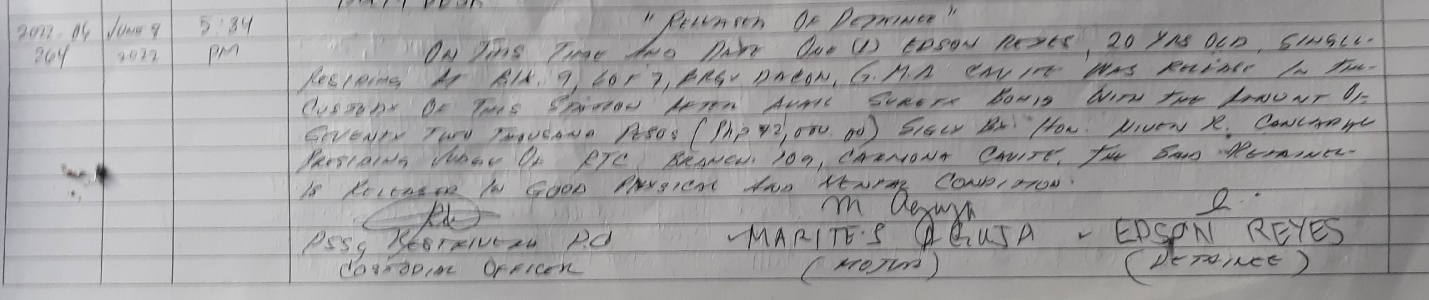 2022-06 JUNE 9 5:34 "RELEASED OF DETAINEE"
264 2022 PM ON THIS TIME AND DATE ONE (1) EDSON REYES, 20 YRS OLD, SINGLE
RESIDING AT BLK. 9, LOT 7, BRGY DACON, G.M.A CAVITE WAS RELEASE IN THE
CUSTODY OF THIS STATION AFTER AVAIL SURETY BOND WITH THE AMOUNT OF
SEVENTY TWO THOUSAND PESOS (Php 72,000.00) SIGN BY: HON.
PRESIDING JUDGE OF RTC BRANCH 109, CARMONA CAVITE. THE SAID DETAINEE
IS RELEASED IN GOOD PHYSICAL AND MENTAL CONDITION.
PSSg
MARITES AGUJA EDSON REYES
CUSTODIAL OFFICER (DETAINEE)